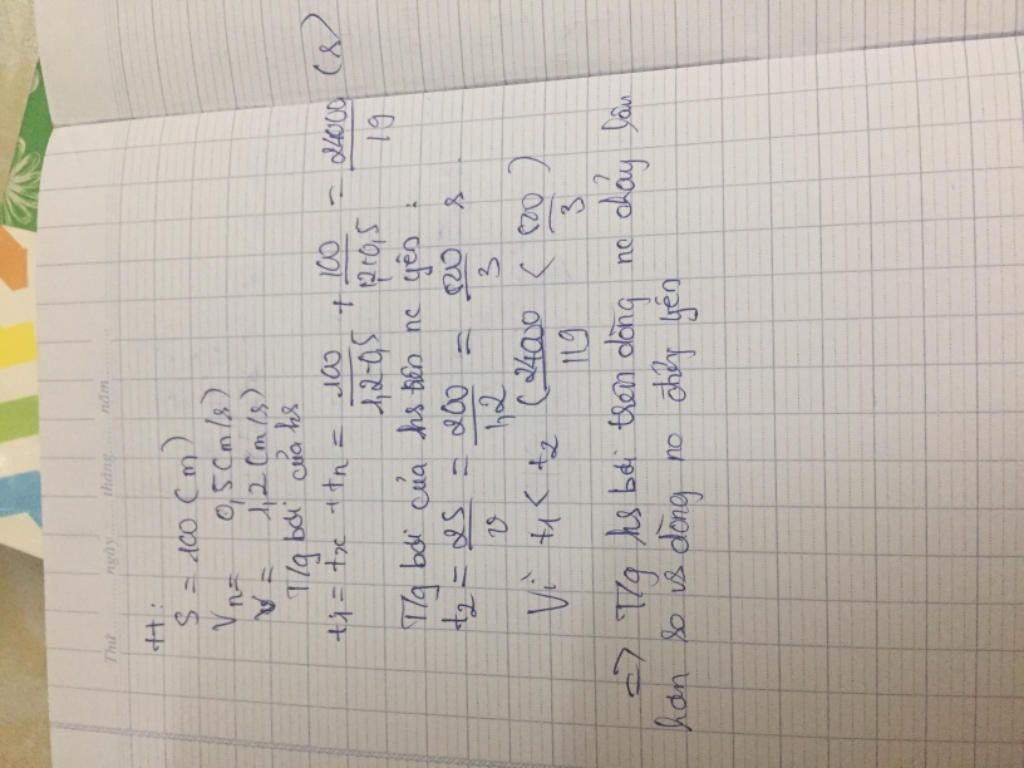 Thứ ngày tháng năm
tt:
S = 100 (m)
Vn = 0,5 (m/s)
v = 1,2 (m/s)
T/g bơi của hs
t1 = tx + tn = 100/1,2-0,5 + 100/1,2+0,5 = 24000/119 (s)
T/g bơi của hs trên nc yên :
t2 = 2S/v = 200/1,2 = 500/3 s
Vì t1 < t2 (24000/119 < 500/3)
=> T/g hs bơi trên dòng nc chảy lâu
hơn so vs dòng nc chảy yên